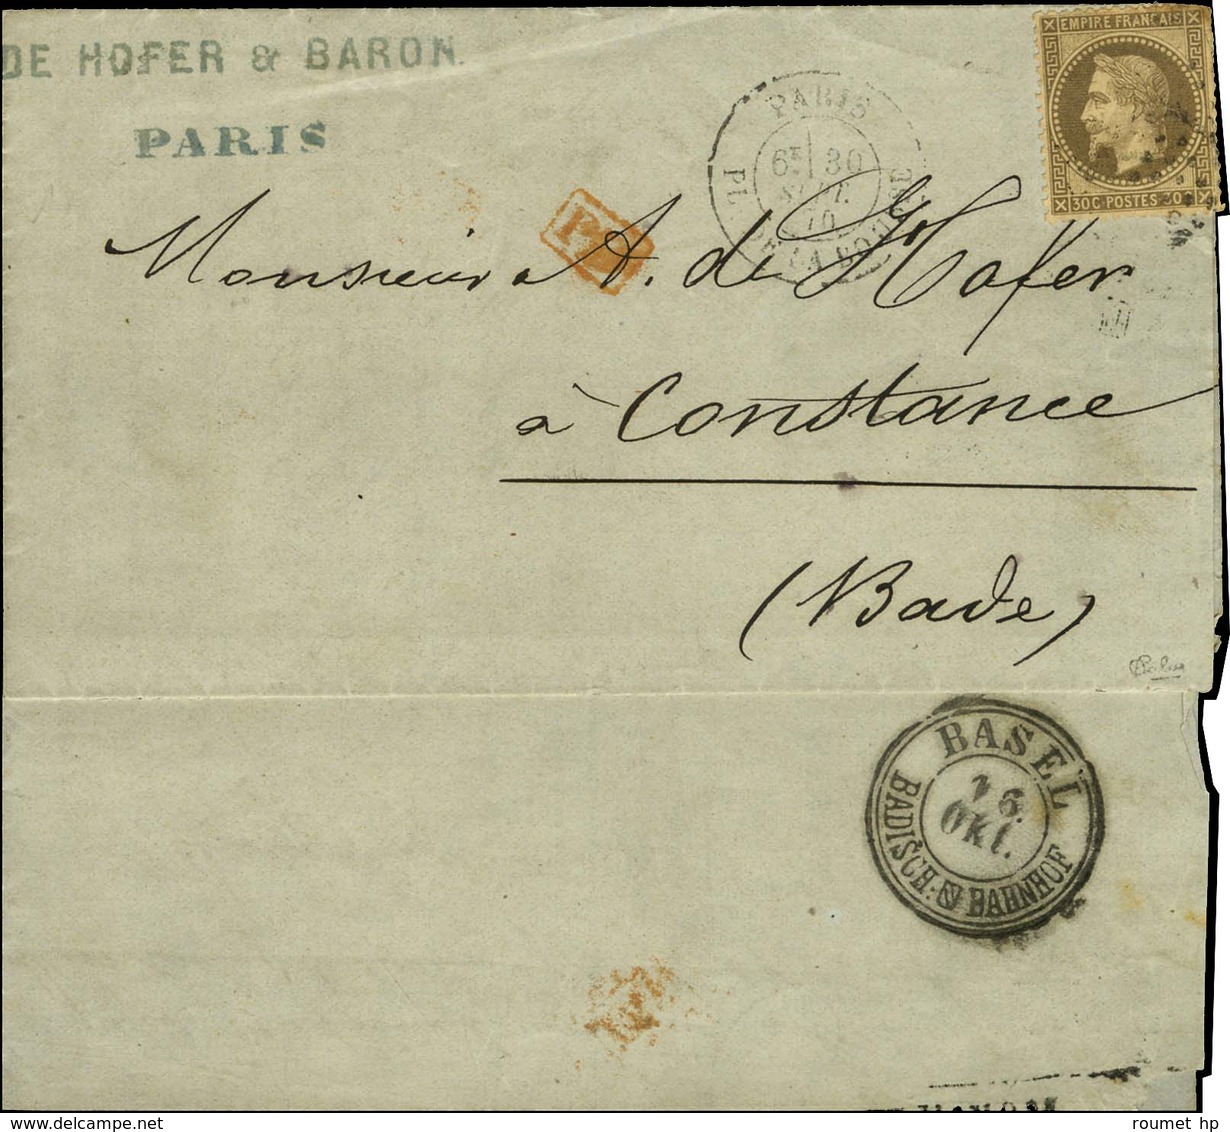 DE HOFER & BARON.
PARIS
EMPIRE FRANÇAIS
30C POSTES 30C
PARIS
6E 30
SEPT.
70
PL. DE LA BOURSE
Monsieur A. de Hofer
à Constance
(Bade)
BASEL
26
OKT.
BADISCH. BAHNHOF
roumet hp